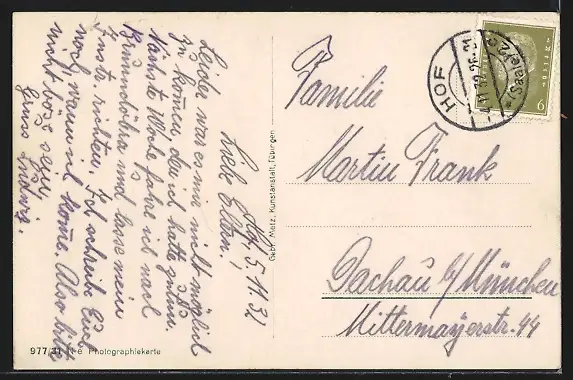 Hof, 5.11.32
Liebe Eltern.
Leider war es mir nicht möglich
zu kommen, den ich hatte
Nächste Woche fahre ich nach
und lasse mein
richten. Ich schreibe Euch
noch, wann ich komme. Also bitte
nicht böse sein
Gruss Ludwig.
Gebr. Metz, Kunstanstalt, Tübingen
HOF
(Saale) 2
6
Familie
Martin Frank
Dachau b/München
Mittermayerstr. 44
977 31 Ne Photographiekarte